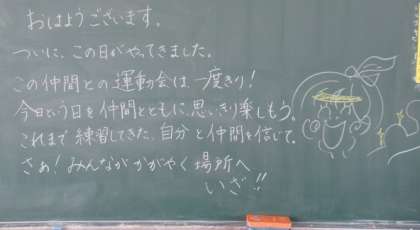 おはようございます。
ついに、この日がやってきました。
この仲間との運動会は一度きり！
今日という日を仲間とともに、思いきり楽しもう。
これまで練習してきた、自分と仲間を信じて。
さぁ！みんながかがやく場所へ
いざ!!